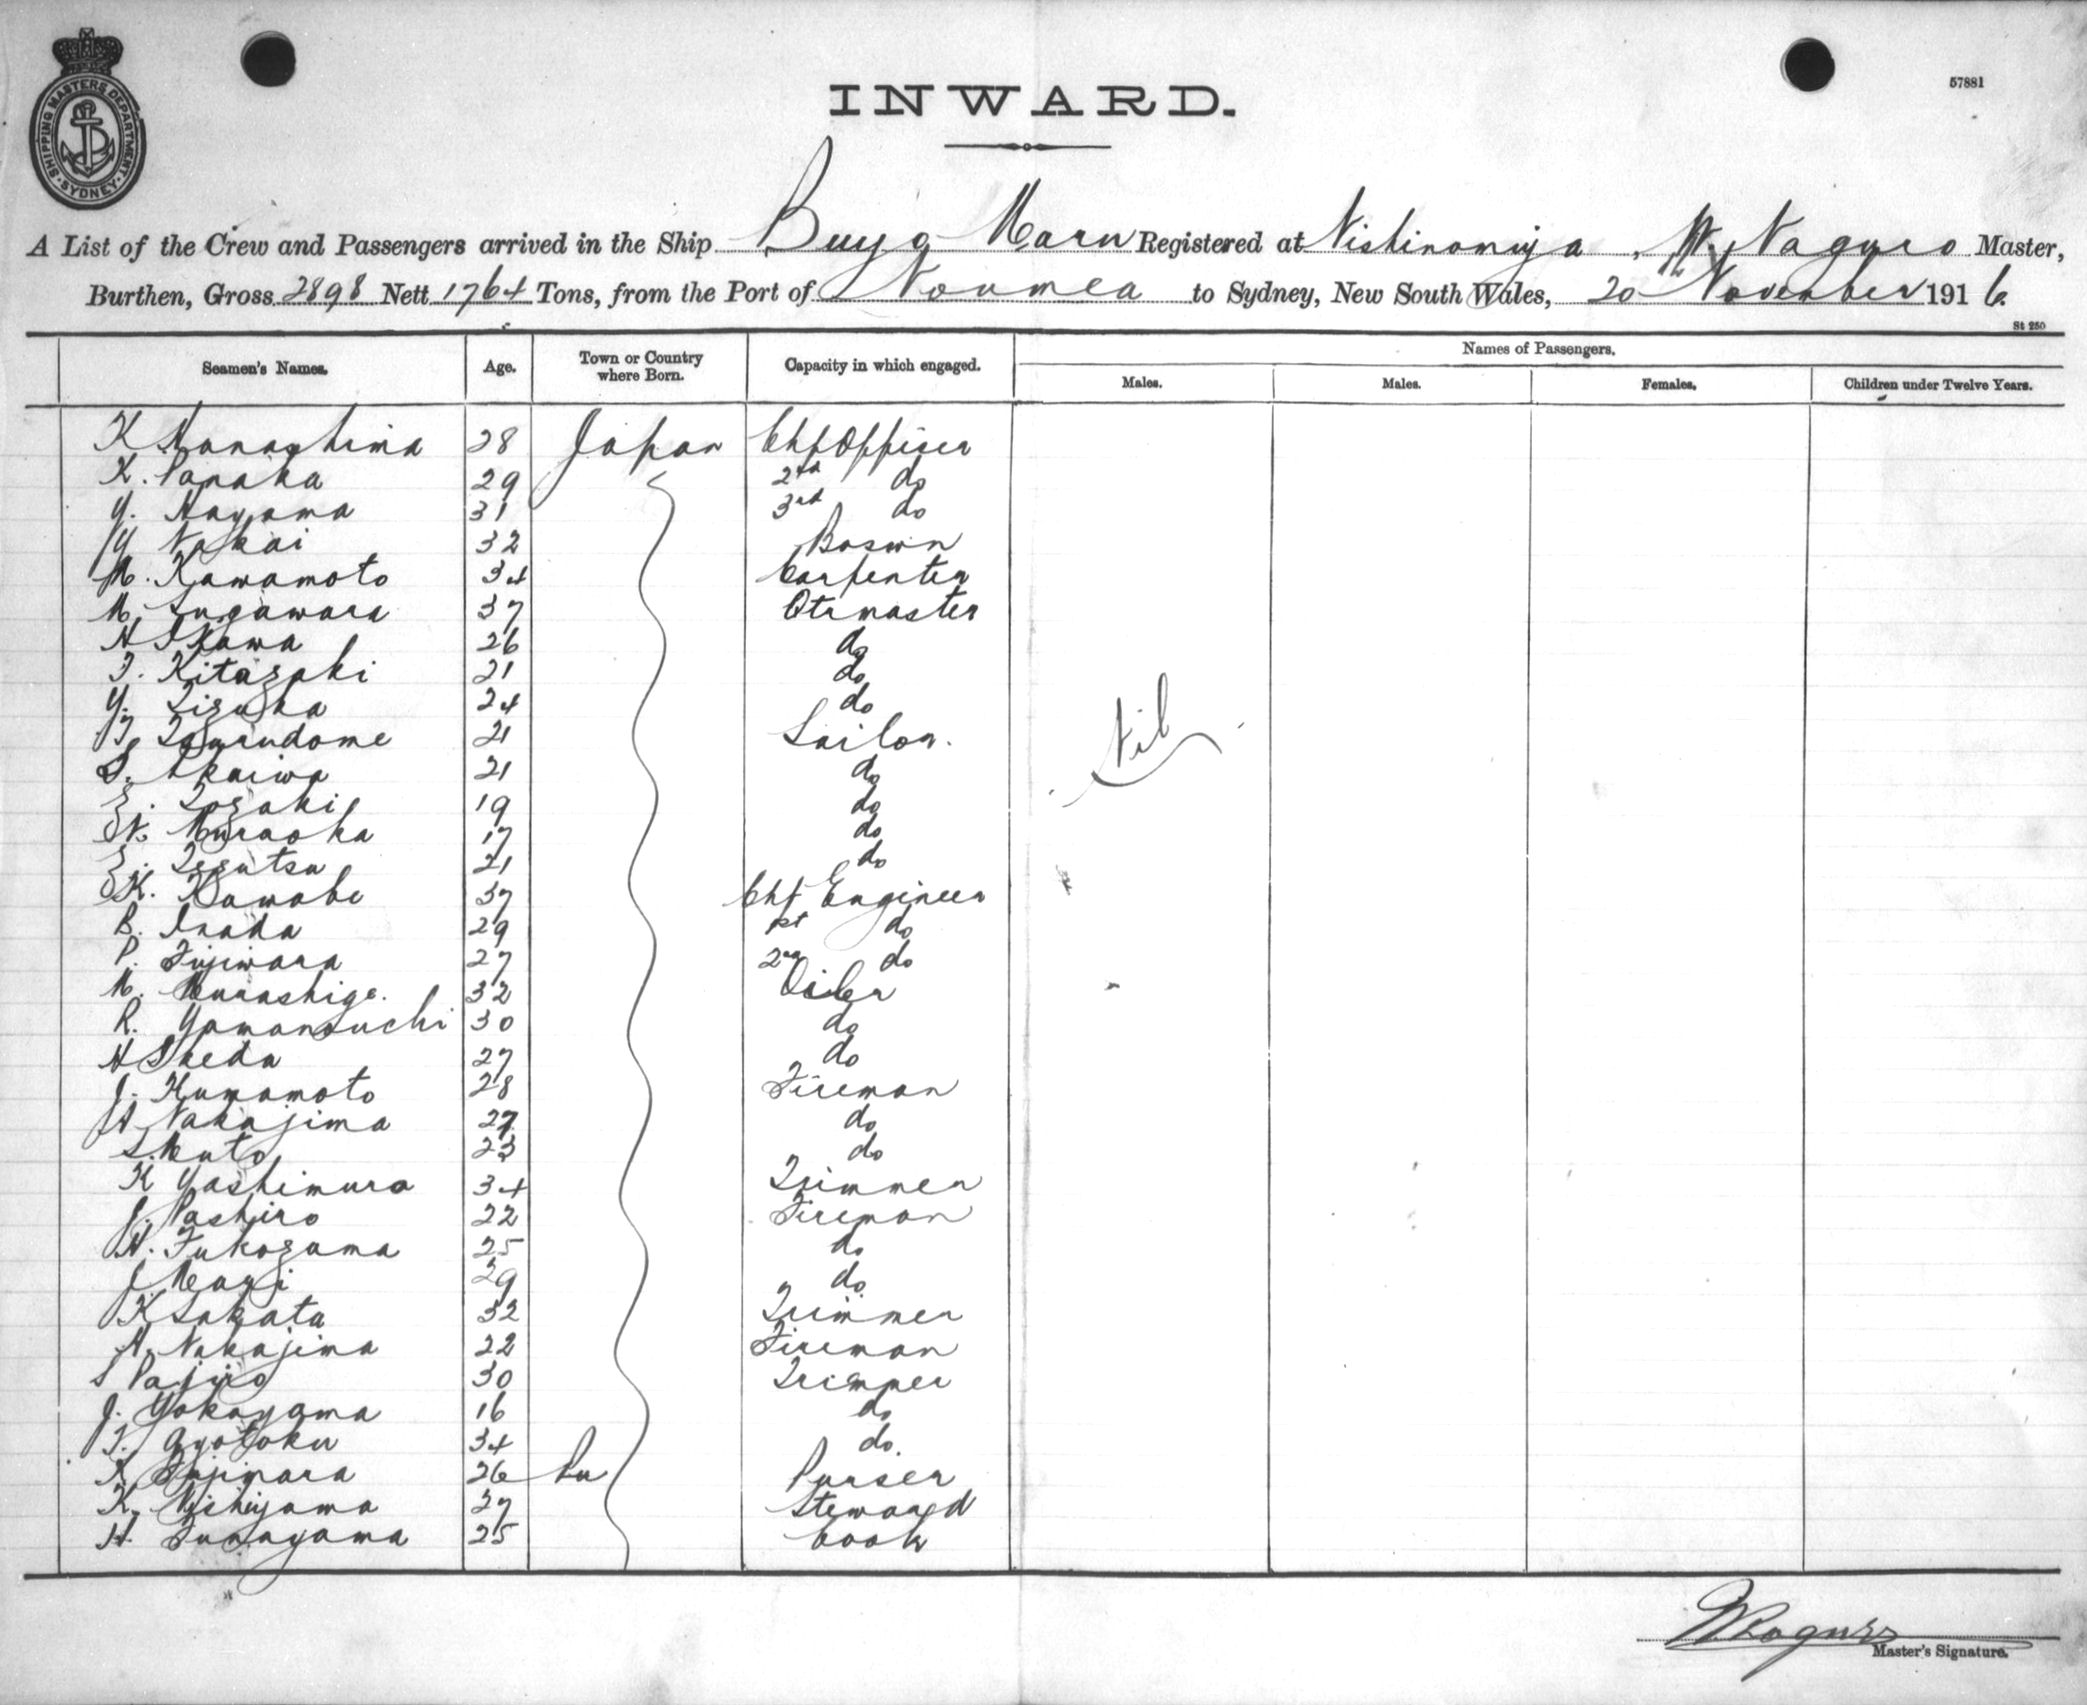 SHIPPING MASTERS DEPARTMENT. SYDNEY.
57881
INWARD.
A List of the Crew and Passengers arrived in the Ship Buyo Maru Registered at Nishinomiya, Naguro Master,
Burthen, Gross 2898 Nett 1764 Tons, from the Port of Noumea to Sydney, New South Wales, 20 November 1916
St 250
Seamen's Names. Age. Town or Country where Born. Capacity in which engaged. Names of Passengers.
Males. Males. Females. Children under Twelve Years.
K Hanashima 28 Japan Chf Officer
K. Tanaka 29 2nd do
Y. Hayama 31 3rd do
Y Nakai 32 Boswn
M. Kawamoto 34 Carpenter
M. Sugawara 37 Qtrmaster
H Ikawa 26 do
T. Kitazaki 21 do
Y. Iizuka 24 do
T. Tsurudome 21 Sailor.
S. Akaiwa 21 do
Nil
E. Tozaki 19 do
N. Muraoka 17 do
E. Izutsu 21 do
K. Kawabe 37 Chf Engineer
B. Inada 29 1st do
P. Fujiwara 27 2nd do
M. Murashige. 32 Oiler
R. Yamanouchi 30 do
H Ikeda 27 do
J. Kumamoto 28 Fireman
H Nakajima 27 do
S. Muto 23 do
K Yoshimura 34 Trimmer
J. Tashiro 22 Fireman
H. Fukozama 25 do
J. 29 do
K Sakata 32 Trimmer
H. Nakajima 22 Fireman
S Tajiro 30 Trimmer
J. Yokoyama 16 do
T. Gyotoku 34 do.
K Fujiwara 26 Pu Purser
K. Nishiyama 27 Steward
H. Funayama 25 Cook
Master's Signature.